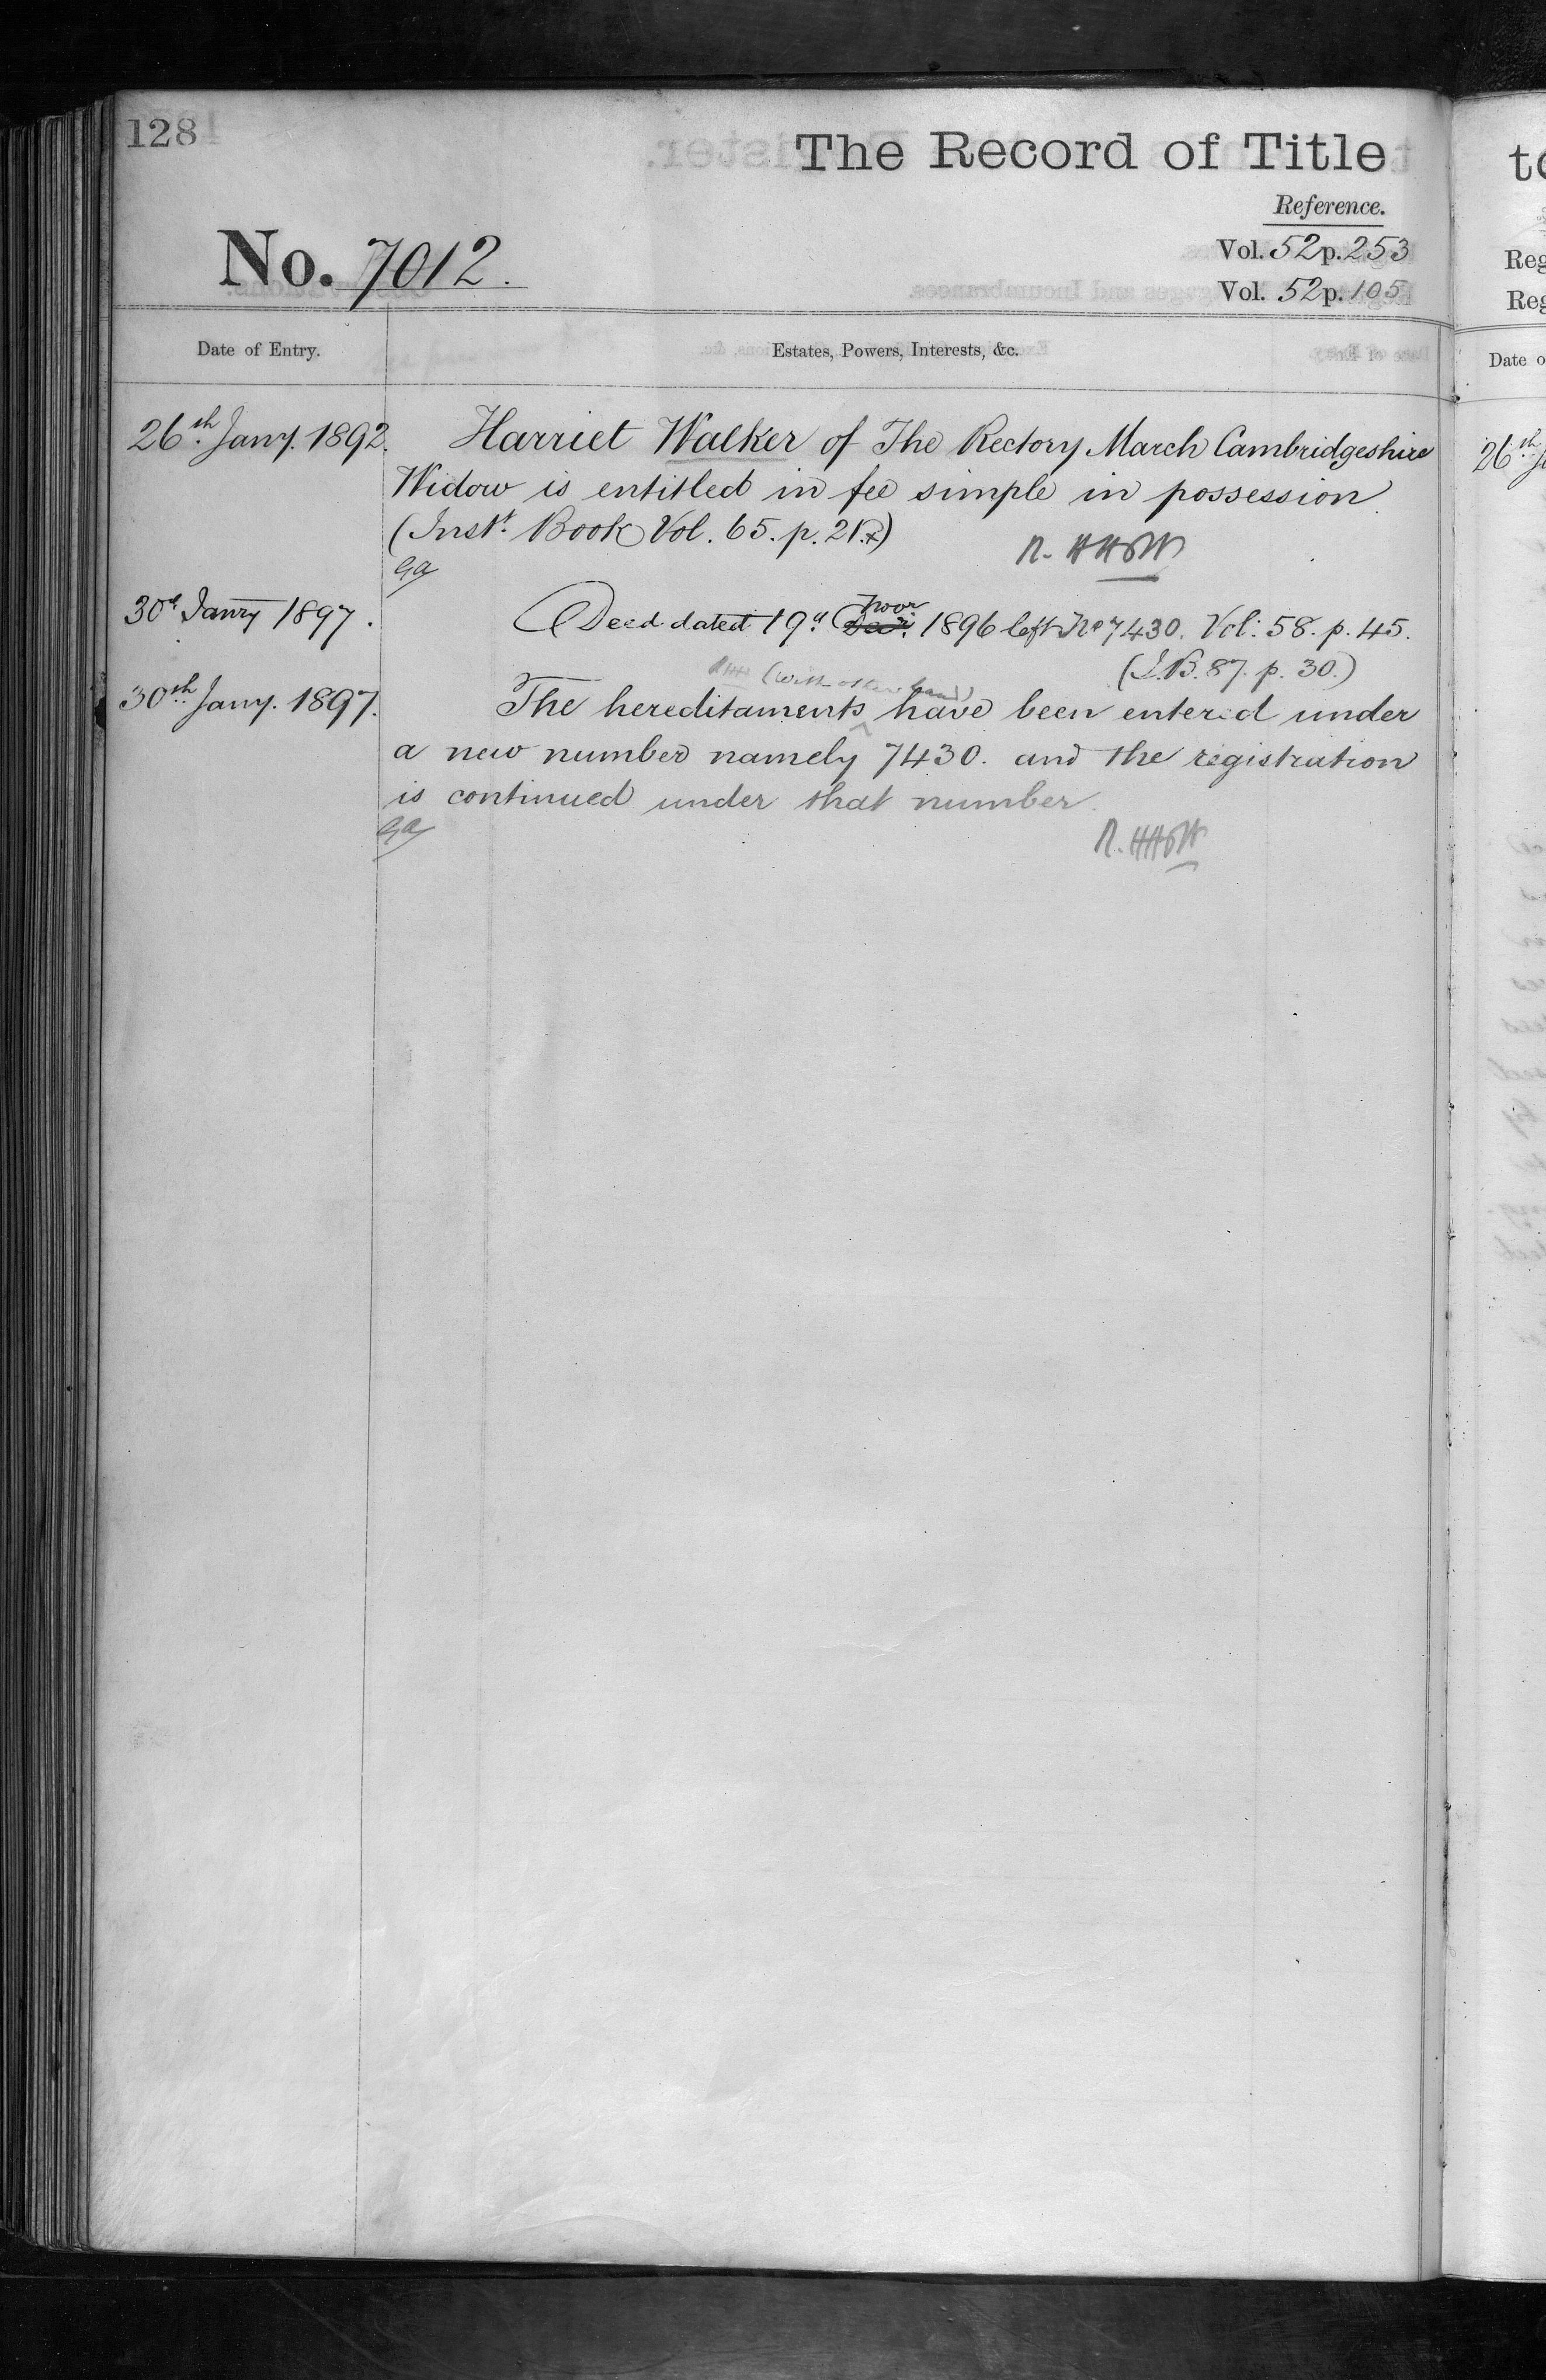 128
The Record of Title
Reference.
No. 7012.
Vol. 52 p. 253
Vol. 52 p. 105
Date of Entry.
Estates, Powers, Interests, &c.
26th Jany. 1892. Harriet Walker of The Rectory March Cambridgeshire
Widow is entitled in fee simple in possession
(Inst. Book Vol. 65. p. 21.)
30th Janry 1897. Deed dated 19th Novr 1896 left No 7430. Vol: 58. p. 45.
(I.B. 87. p. 30.)
(with other land)
30th Jany. 1897. The hereditaments have been entered under
a new number namely 7430. and the registration
is continued under that number.
Reg
Reg
Date o
26th